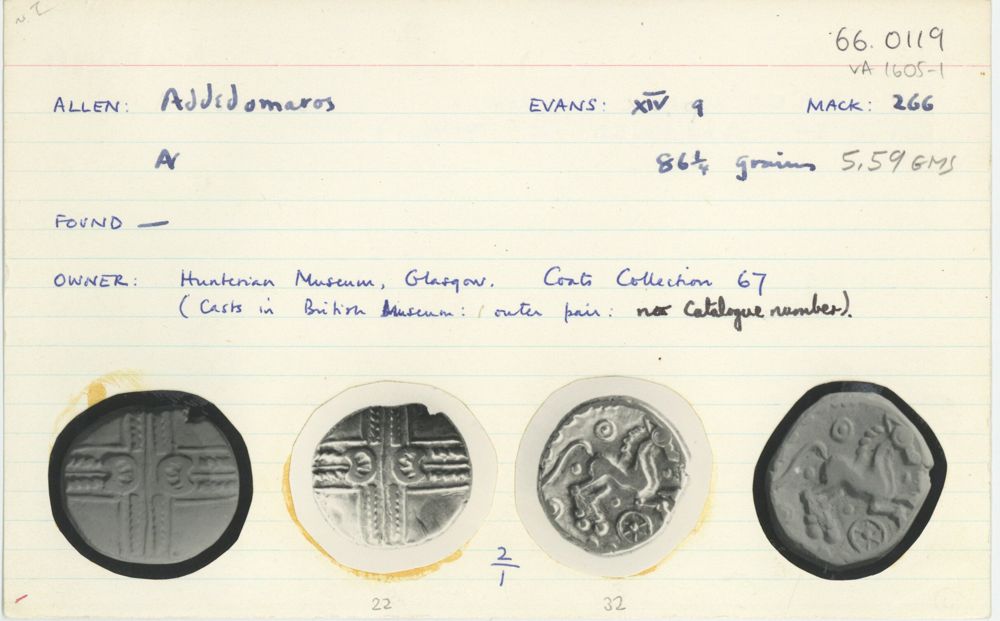 66.0119
VA 1605-1
ALLEN: Addedomaros EVANS: XIV 9 MACK: 266
AV 86 1/4 grains 5.59 GMS
FOUND —
OWNER: Hunterian Museum, Glasgow. Coats Collection 67
(Casts in British Museum: outer pair: no Catalogue number).
2/1
22 32